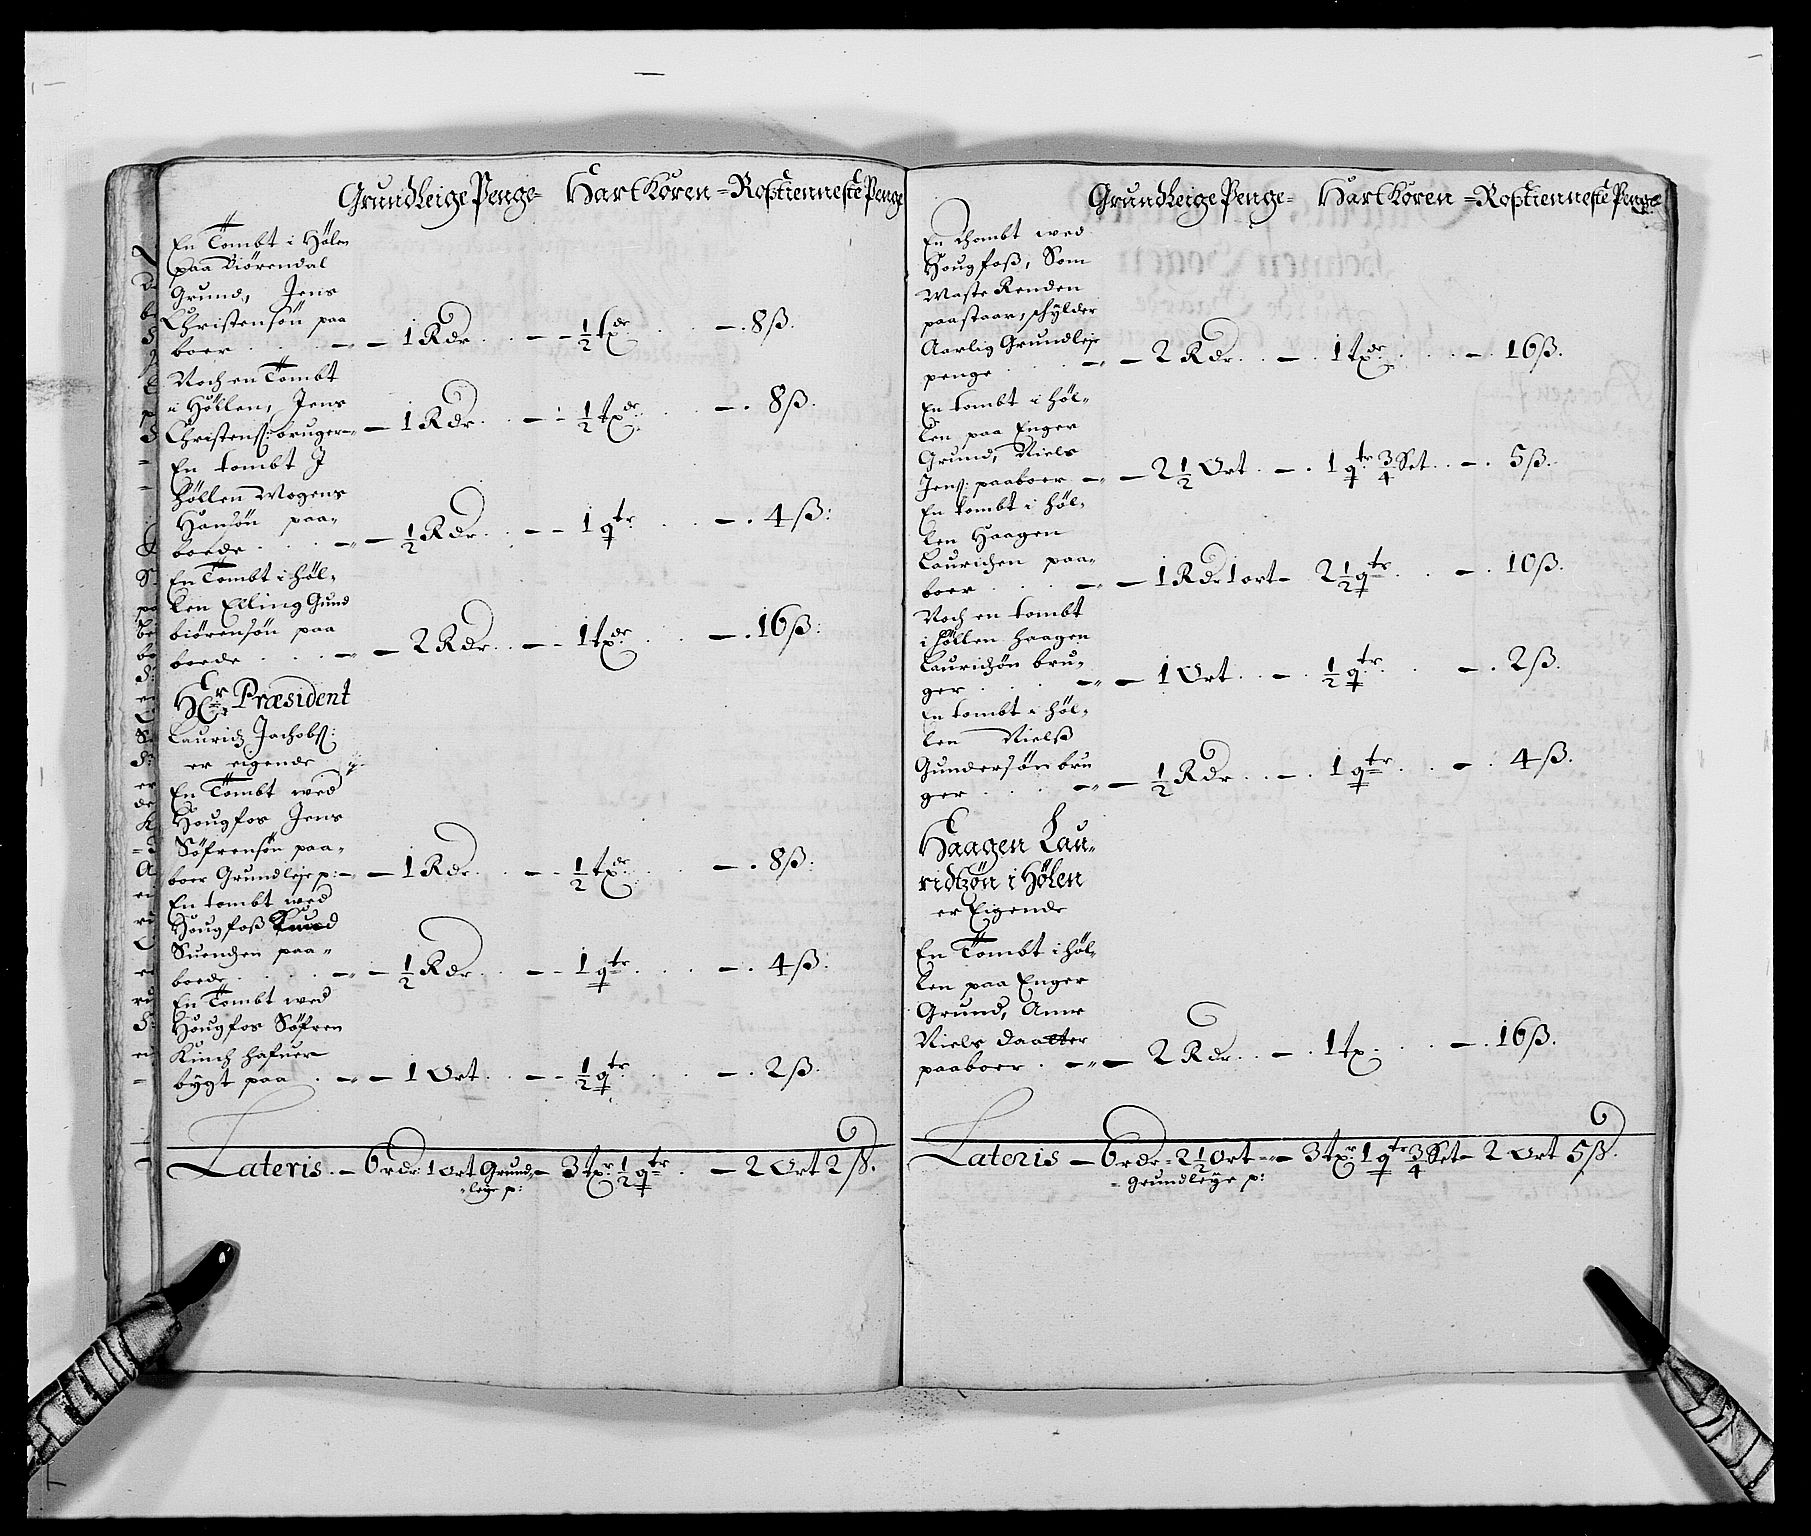 GrundLeige Penge- HartKören = Roßtienneste Penge
En Tombt i Hölen
paa Biörendal
Grund, Jens
Christensön paa
boer - 1 Rdr - ½ tpde - 8ß.
Noch en Tombt
i Höllen, Jens
Christenß: bruger - 1 Rdr - ½ tpde - 8ß.
En tombt J
Höllen Mogens
Hansön paa-
boede - ½ Rdr - 1 qtr - 4ß:
En Tombt i Höl-
len Elling Gund
biörensön paa
boede - 2 Rdr - 1 tpde - 16ß:
Her Præsident
Lauridz Jachobß:
er eigende
En Tombt wed
Hougfos Jens
Söfrensön paa-
boer Grundleje p: - 1 Rdr - ½ tpde - 8ß:
En tombt wed
Hougfoß Knud
Suendzen paa-
boede - ½ Rdr - 1 qtr - 4ß:
En Tombt wed
Hougfos Söfren
Kinch hafuer
bygt paa - 1 Ort - ½ qtr - 2ß.
Lateris - 6 rdr 1 ort Grund- - 3 tpr ½ qtr - 2 Ort 2ß.
leye p:
GrundLeige Penge- HartKören = Roßtienneste Penge
En thombt wed
Hougfoß, Som
Waste Renden
paastaar, schylder
Aarlig Grundleje
penge - 2 Rdr - 1 tpde - 16ß.
En tombt i Höl-
len paa Enger
Grund, Niels
Jenß: paaboer - 2½ Ort - 1 qtr ¾ Set - 5ß.
En tombt i Höl-
len Haagen
Lauridzen paa-
boer - 1 Rdr 1 ort - 2½ qtr - 10ß.
Noch en tombt
i Höllen Haagen
Lauridzön bru-
ger - 1 Ort - ½ qtr - 2ß.
En tombt i Höl-
len Nielß
Gundersön bru
ger - ½ Rdr - 1 qtr - 4ß.
Haagen Lau-
ridtzön i Hölen
er Eigende
En Tombt i Höl-
len paa Enger
Grund, Anne
Niels daatter
paaboer - 2 Rdr - 1 tp - 16ß.
Lateris - 6 rdr = 2½ Ort - 3 tpr 1 qtr ¾ Set - 2 Ort 5ß.
Grundleye p: